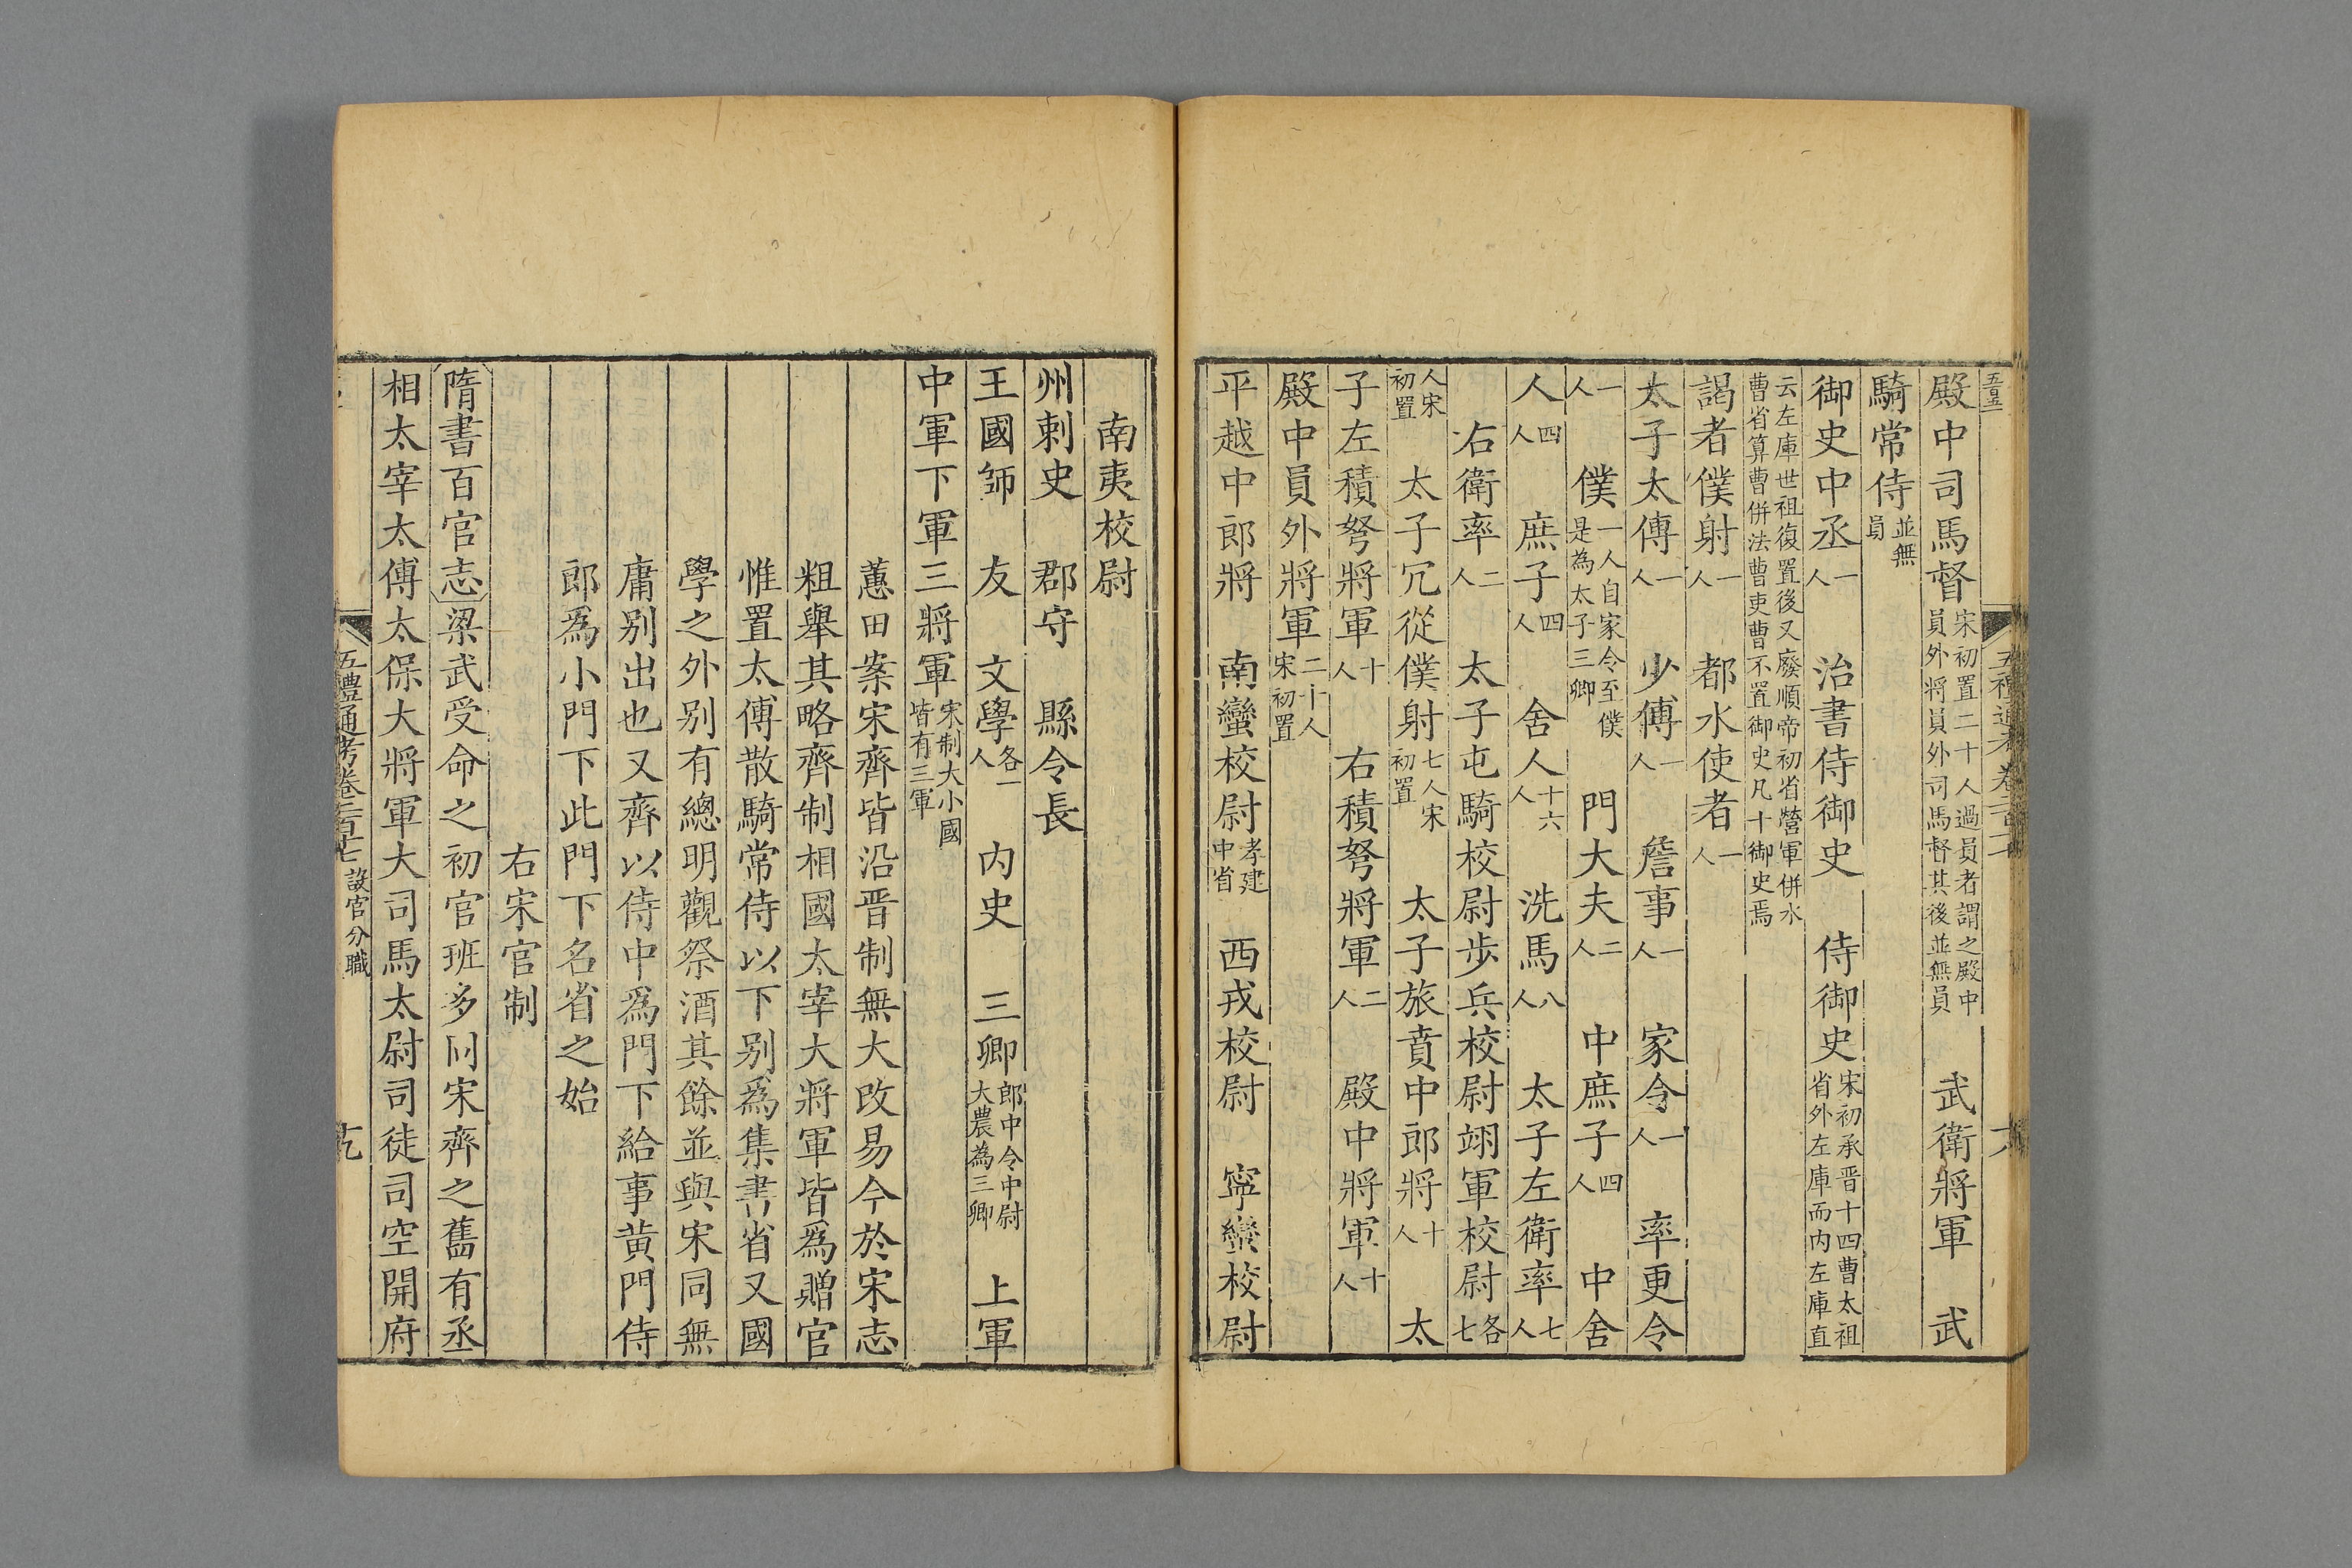 殿中司馬督宋初置二十人過員者謂之殿中員外將員外司馬督其後並無員　武衛將軍　武
騎常侍並無員
御史中丞一人　治書侍御史　侍御史宋初承晋十四曹太祖省外左庫而内左庫直
云左庫世祖復置後又廢順帝初省營軍併水曹省算曹併法曹吏曹不置御史凡十御史焉
謁者僕射一人　都水使者一人
太子太傅一人　少傅一人　詹事一人　家令一人　率更令
一人　僕一人自家令至僕是為太子三卿　門大夫二人　中庶子四人　中舍
人四人　庶子四人　舍人十六人　洗馬八人　太子左衛率七人
右衛率二人　太子屯騎校尉步兵校尉翊軍校尉各七
人宋初置　太子冗從僕射七人宋初置　太子旅賁中郎將十人　太
子左積弩將軍十人　右積弩將軍二人　殿中將軍十人
殿中員外將軍二十人宋初置
平越中郎將　南蠻校尉孝建中省　西戎校尉　寧蠻校尉
南夷校尉
州刺史　郡守　縣令長
王國師　友　文學各一人　内史　三卿郎中令中尉大農為三卿　上軍
中軍下軍三將軍宋制大小國皆有三軍
蕙田案宋齊皆沿晋制無大改易今於宋志
粗舉其略齊制相國太宰大將軍皆爲贈官
惟置太傅散騎常侍以下别爲集書省又國
學之外别有總明觀祭酒其餘並與宋同無
庸别出也又齊以侍中爲門下給事黄門侍
郎爲小門下此門下名省之始
右宋官制
隋書百官志梁武受命之初官班多同宋齊之舊有丞
相太宰太傅太保大將軍大司馬太尉司徒司空開府
五禮通考卷二百十七　設官分職